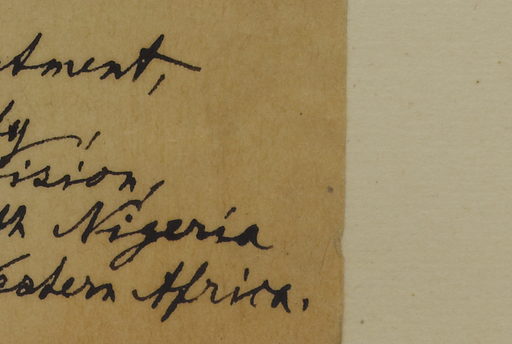 tment,
ly,
ision,
th Nigeria
estern Africa.